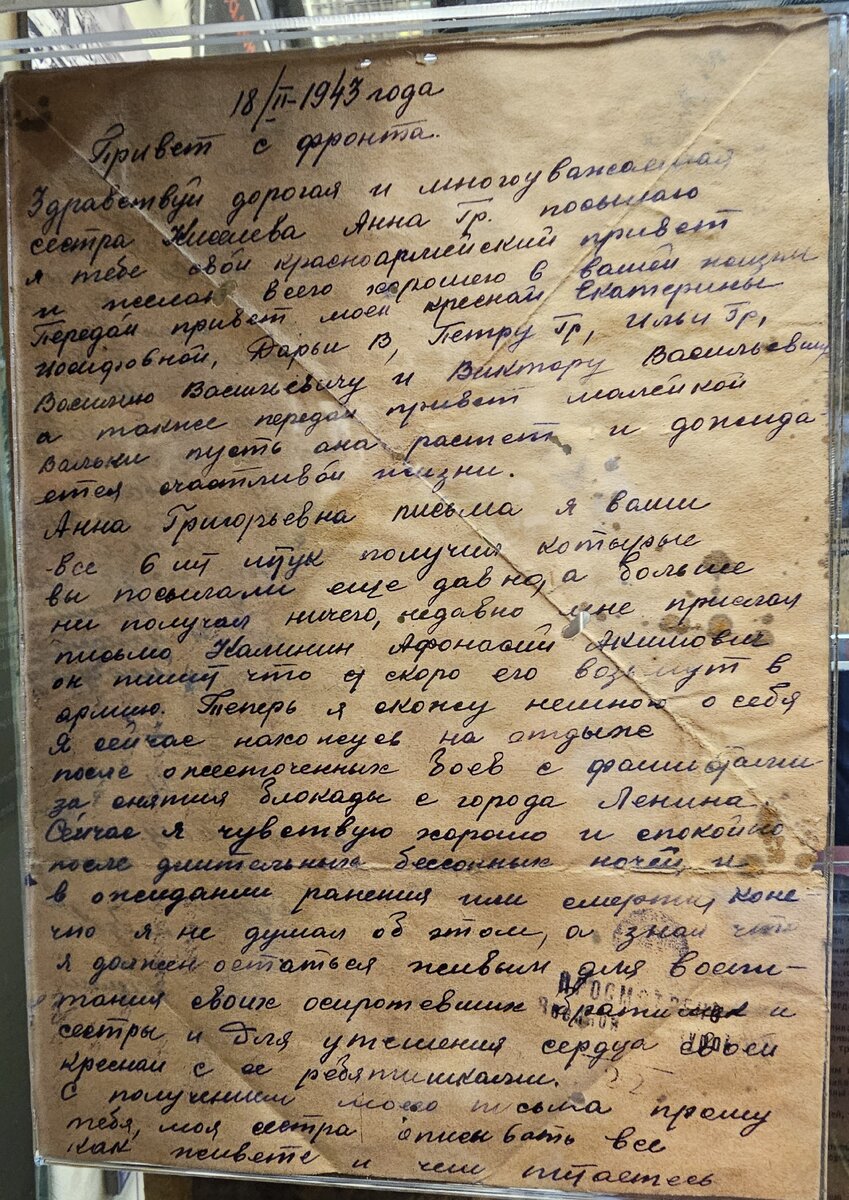 18/II-1943 года
Привет с фронта.
Здравствуй дорогая и многоуважаемая
сестра Киселева Анна Гр. посылаю
я тебе свой красноармейский привет
и желаю всего хорошего в вашей жизни
Передай привет моей кресной Екатерины
Иосифовной, Дарьи В, Петру Гр, Ильи Гр,
Василию Васильевичу и Виктору Васильевичу
а также передай привет маленкой
Вальки пусть она растет и дожида-
ется счастливой жизни.
Анна Григорьевна письма я ваши
все 6 шт штук получил которые
вы посылали еще давно, а больше
ни получал ничего, недавно мне прислал
письмо Калинин Афонасий Акимович
он пишит что скоро его возьмут в
армию. Теперь я скажу немного о себя
Я сейчас нахожусь на отдыже
после ожесточенных боев с фашистами
за снятия блокады с города Ленина.
Сейчас я чувствую хорошо и спокойно
после длительных бессонных ночей, и
в ожидании ранения или смерти, коне-
чно я не думал об этом, а знал что
я должен остаться живым для воспи-
тания своих осиротевших братишек и
сестры и для утешения сердца своей
кресной с ее ребятишками.
С получением моего письма прошу
тебя, моя сестра описывать все
как живете и чем питаетесь
ПРОСМОТРЕНО